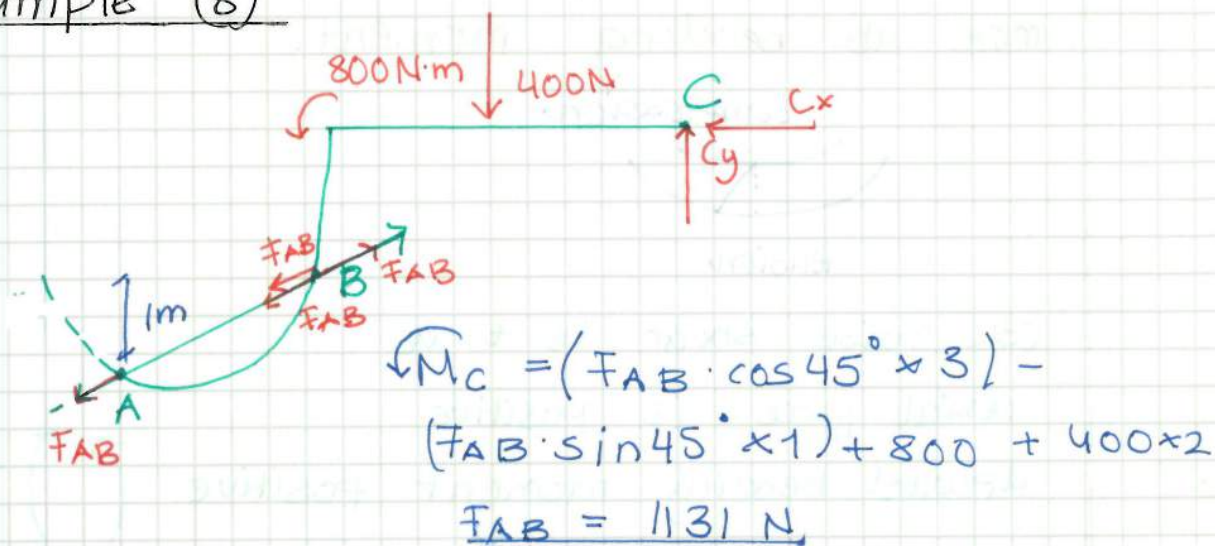 (8)
800N·m
400N
C
Cx
Cy
FAB
B
FAB
FAB
1m
A
FAB
Mc = (FAB · cos 45° × 3) -
(FAB · sin 45° × 1) + 800 + 400×2
FAB = 1131 N